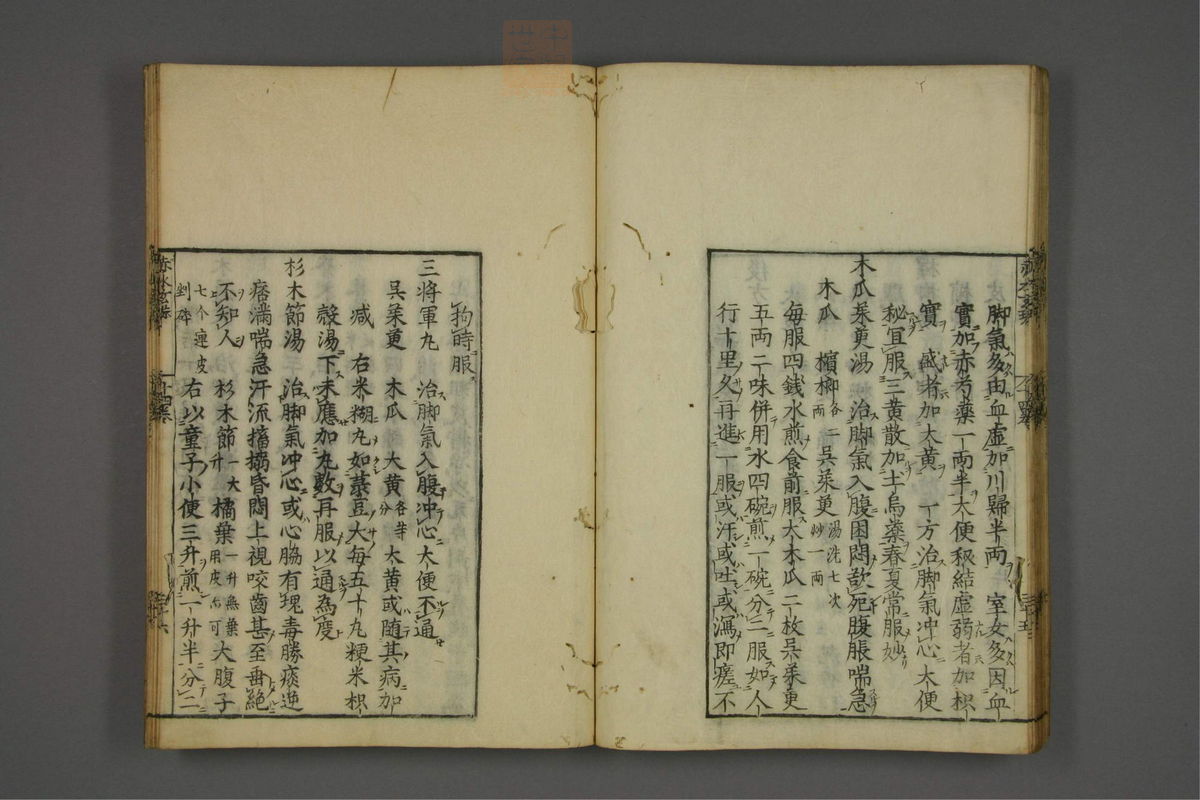 脚氣多由血虛加川歸半兩 室女多因血
實加赤芍藥一兩半大便秘結虛弱者加枳
實 盛者加大黃 一方治脚氣冲心大便
秘宜服三黃散加士烏藥春夏常服妙
木瓜茱萸湯 治脚氣入腹困悶欲死腹脹喘急
木瓜 檳榔各二兩 吳茱萸湯洗七次炒一兩
每服四錢水煎食前服大木瓜二枚吳茱萸
五兩二味併用水四碗煎一碗分二服如人
行十里久再進一服或汗或吐或瀉即瘥不
拘時服
三將軍丸 治脚氣入腹冲心大便不通
吳茱萸 木瓜 大黃各等分 大黃或随其病加
减 右米糊丸如菉豆大每五十丸粳米枳
殼湯下未應加丸數再服以通為度
杉木節湯 治脚氣冲心或心脇有塊毒勝痰逆
痞滿喘急汗流搐搦昏悶上視咬齒甚至垂絕
不知人 杉木節一大升 橘葉一升無葉用皮亦可 大腹子
七个連皮剉碎 右以童子小便三升煎一升半分二